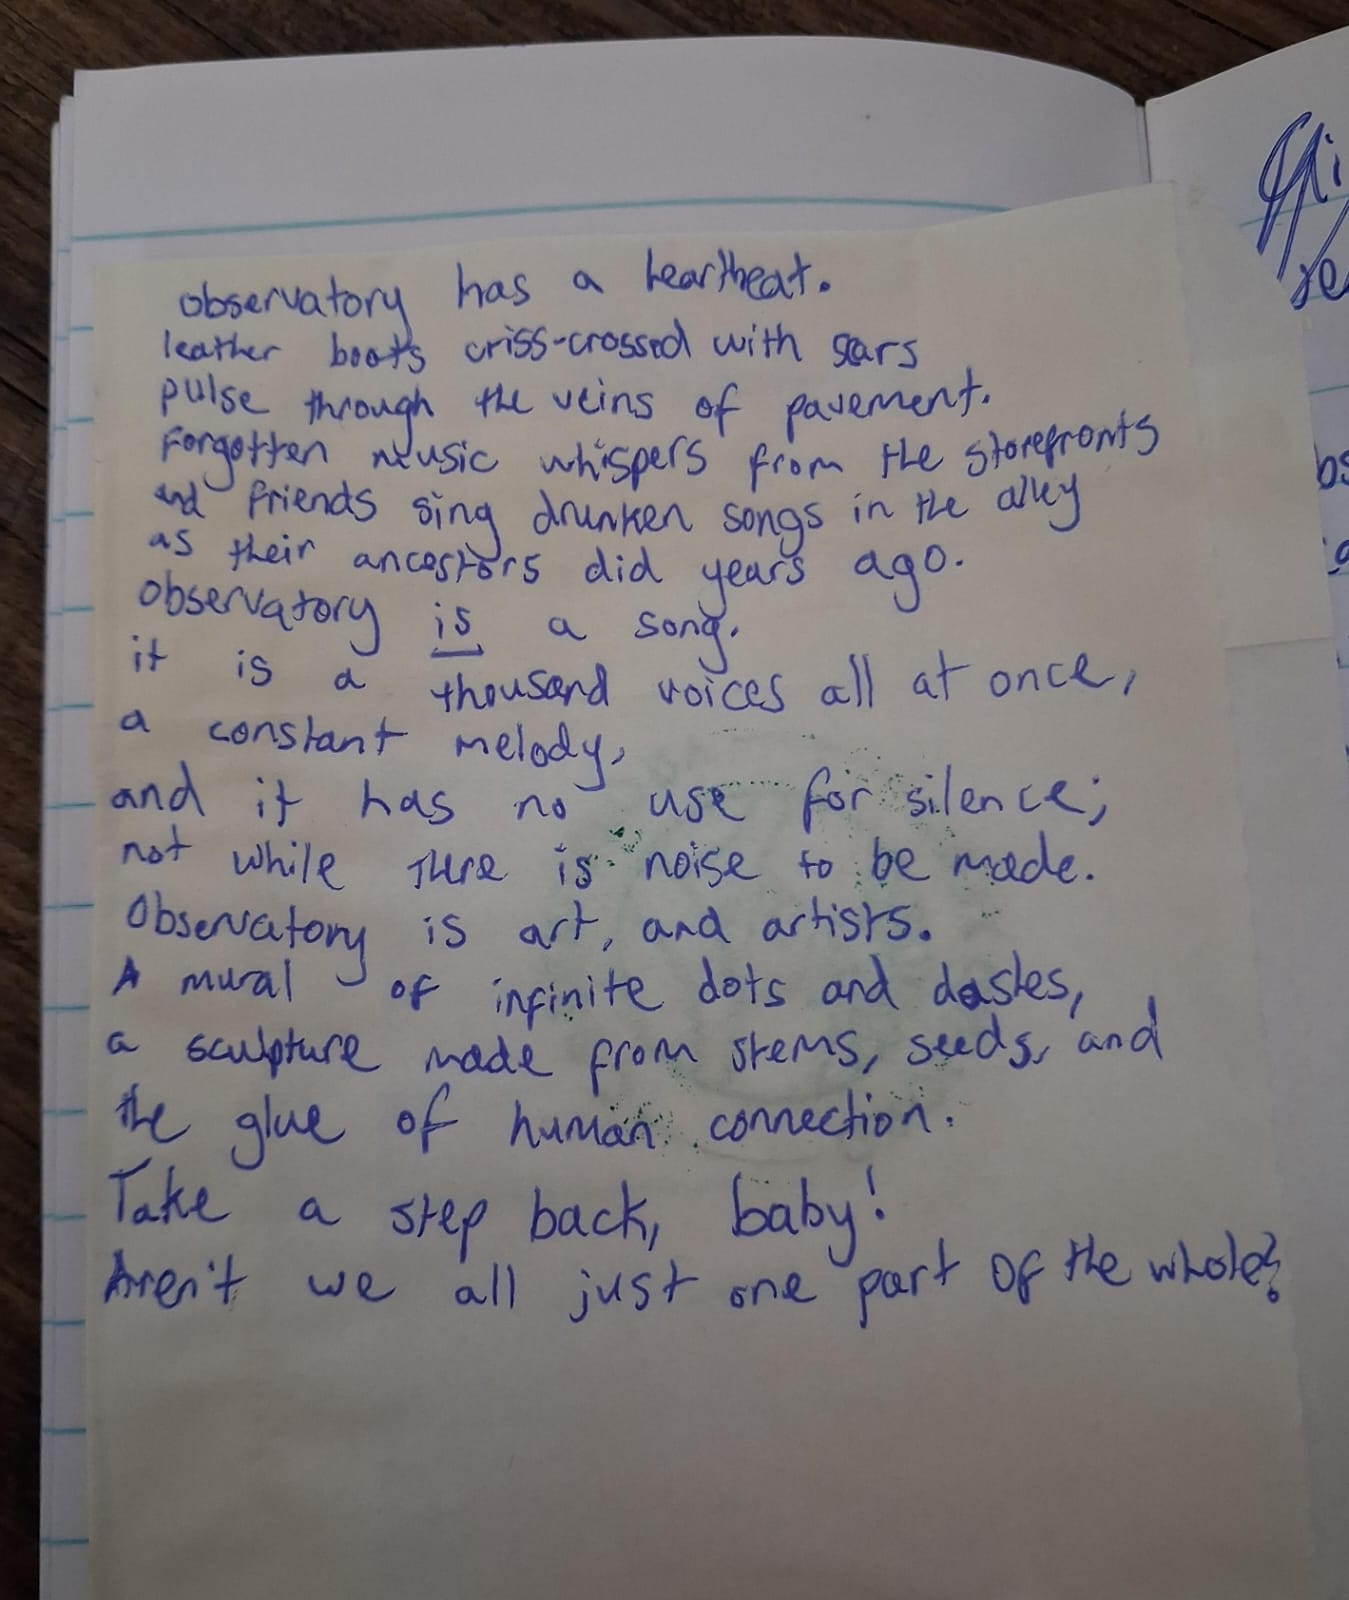 observatory has a heartbeat.
leather boots criss-crossed with scars
pulse through the veins of pavement.
Forgotten music whispers from the storefronts
and friends sing drunken songs in the alley
as their ancestors did years ago.
Observatory is a song.
it is a thousand voices all at once,
a constant melody,
and it has no use for silence;
not while there is noise to be made.
Observatory is art, and artists.
A mural of infinite dots and dashes,
a sculpture made from stems, seeds, and
the glue of human connection.
Take a step back, baby!
Aren't we all just one part of the whole?